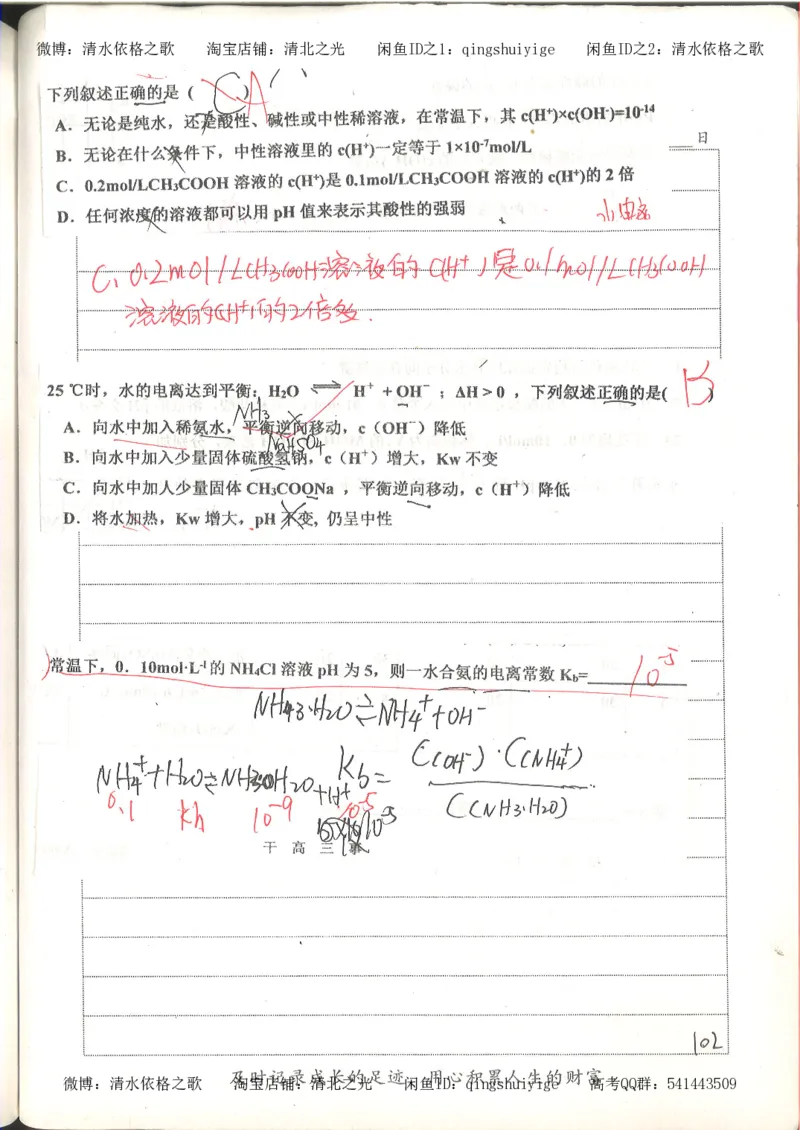 微博：清水依格之歌 淘宝店铺：清北之光 闲鱼ID之1：qingshuiyige 闲鱼ID之2：清水依格之歌
下列叙述正确的是（C）A
A．无论是纯水，还是酸性、碱性或中性稀溶液，在常温下，其 c(H⁺)×c(OH⁻)=10⁻¹⁴
日
B．无论在什么条件下，中性溶液里的 c(H⁺)一定等于 1×10⁻⁷mol/L
C．0.2mol/LCH₃COOH 溶液的 c(H⁺)是 0.1mol/LCH₃COOH 溶液的 c(H⁺)的 2 倍
D．任何浓度的溶液都可以用 pH 值来表示其酸性的强弱
水电离
C、0.2mol/LCH3COOH溶液的C(H⁺)是0.1mol/LCH3COOH
溶液的C(H⁺)的2倍多.
25 ℃时，水的电离达到平衡：H₂O ⇌ H⁺ + OH⁻ ；ΔH > 0 ，下列叙述正确的是( B )
NH3
A．向水中加入稀氨水，平衡逆向移动，c（OH⁻）降低
NaHSO4
B．向水中加入少量固体硫酸氢钠，c（H⁺）增大，Kw 不变
C．向水中加人少量固体 CH₃COONa ，平衡逆向移动，c（H⁺）降低
D．将水加热，Kw 增大，pH 不变，仍呈中性
常温下，0．10mol·L⁻¹的 NH₄Cl 溶液 pH 为 5，则一水合氨的电离常数 K_b= 10⁻⁵
NH43·H2O⇌NH4⁺+OH⁻
NH4⁺+H2O⇌NH3·H2O+H⁺ Kb= C(OH⁻)·C(NH4⁺)
C(NH3·H2O)
0.1 kh 10⁻⁹ 10⁻⁵
干 高 三
102
及时记录成长的足迹 用心积累人生的财富
微博：清水依格之歌 淘宝店铺：清北之光 闲鱼ID：qingshuiyige 高考QQ群：541443509